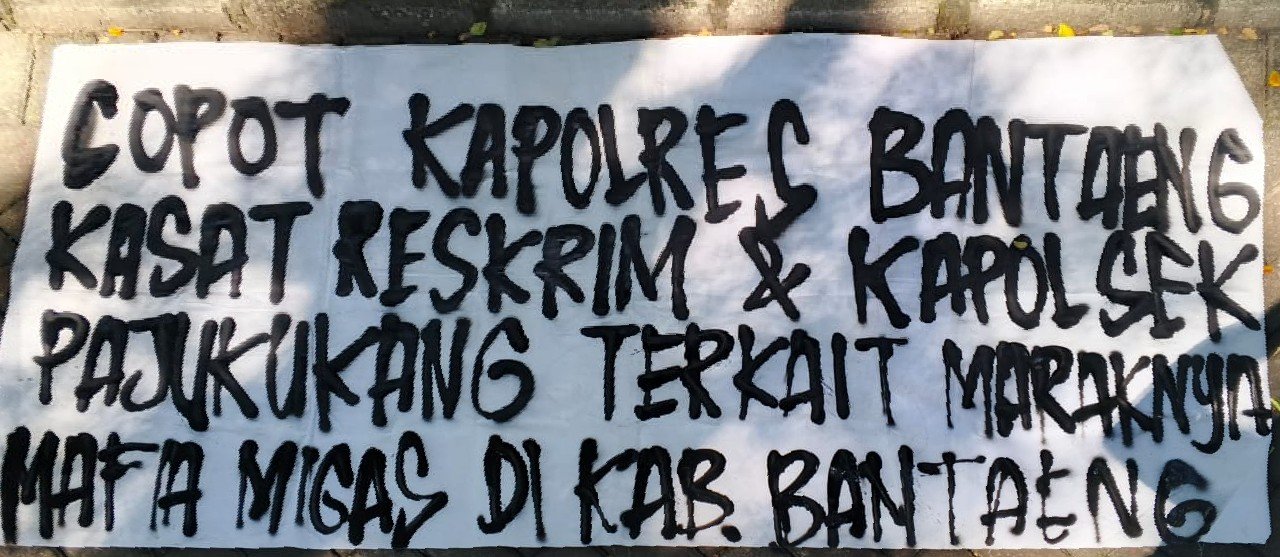 COPOT KAPOLRES BANTAENG
KASAT RESKRIM & KAPOLSEK
PAJUKUKANG TERKAIT MARAKNYA
MAFIA MIGAS DI KAB. BANTAENG